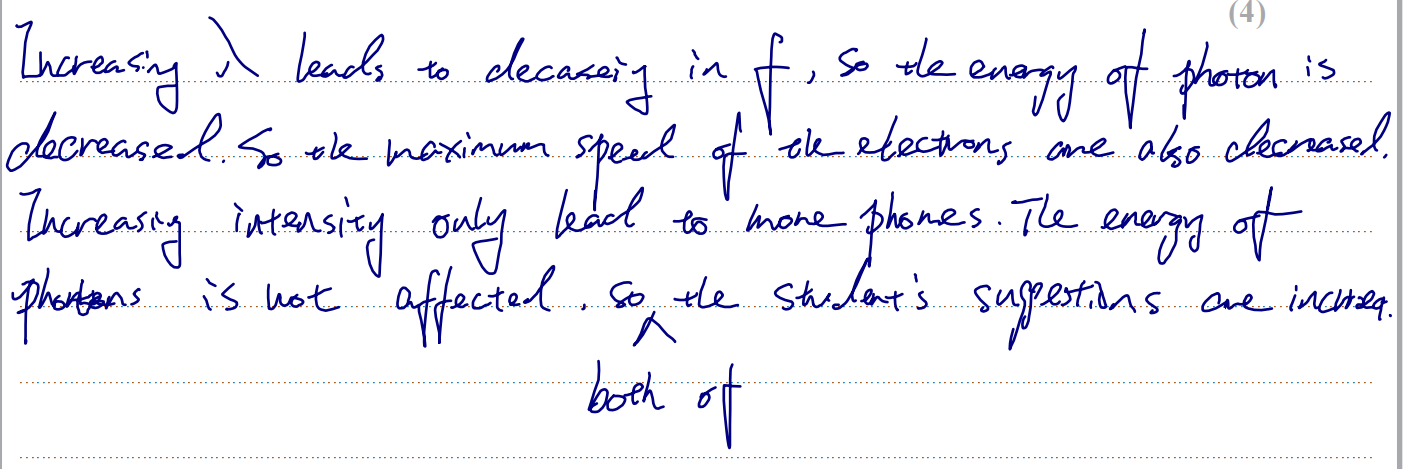 (4)
Increasing λ leads to decaseiy in f, so the energy of photon is
decreased. So the maximum speed of the electrons are also decreased.
Increasing intensity only lead to more phones. The energy of
photons is not affected, so the student's suggestions are
both of